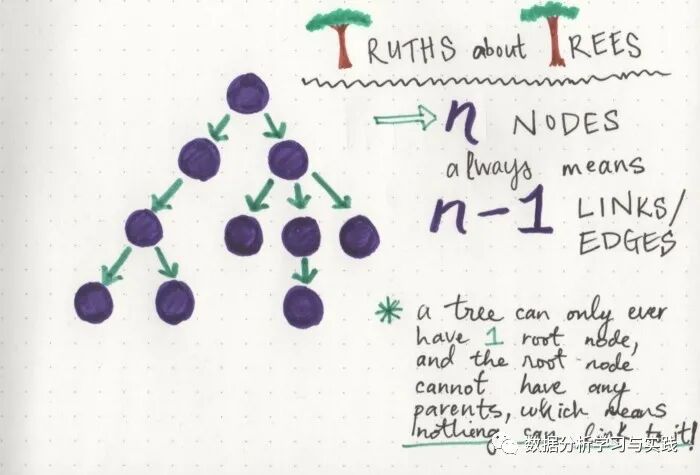 TRUTHS about TREES
n NODES
always means
n-1 LINKS/
EDGES
* a tree can only ever
have 1 root node,
and the root node
cannot have any
parents, which means
nothing can link to it!
数据分析学习与实践